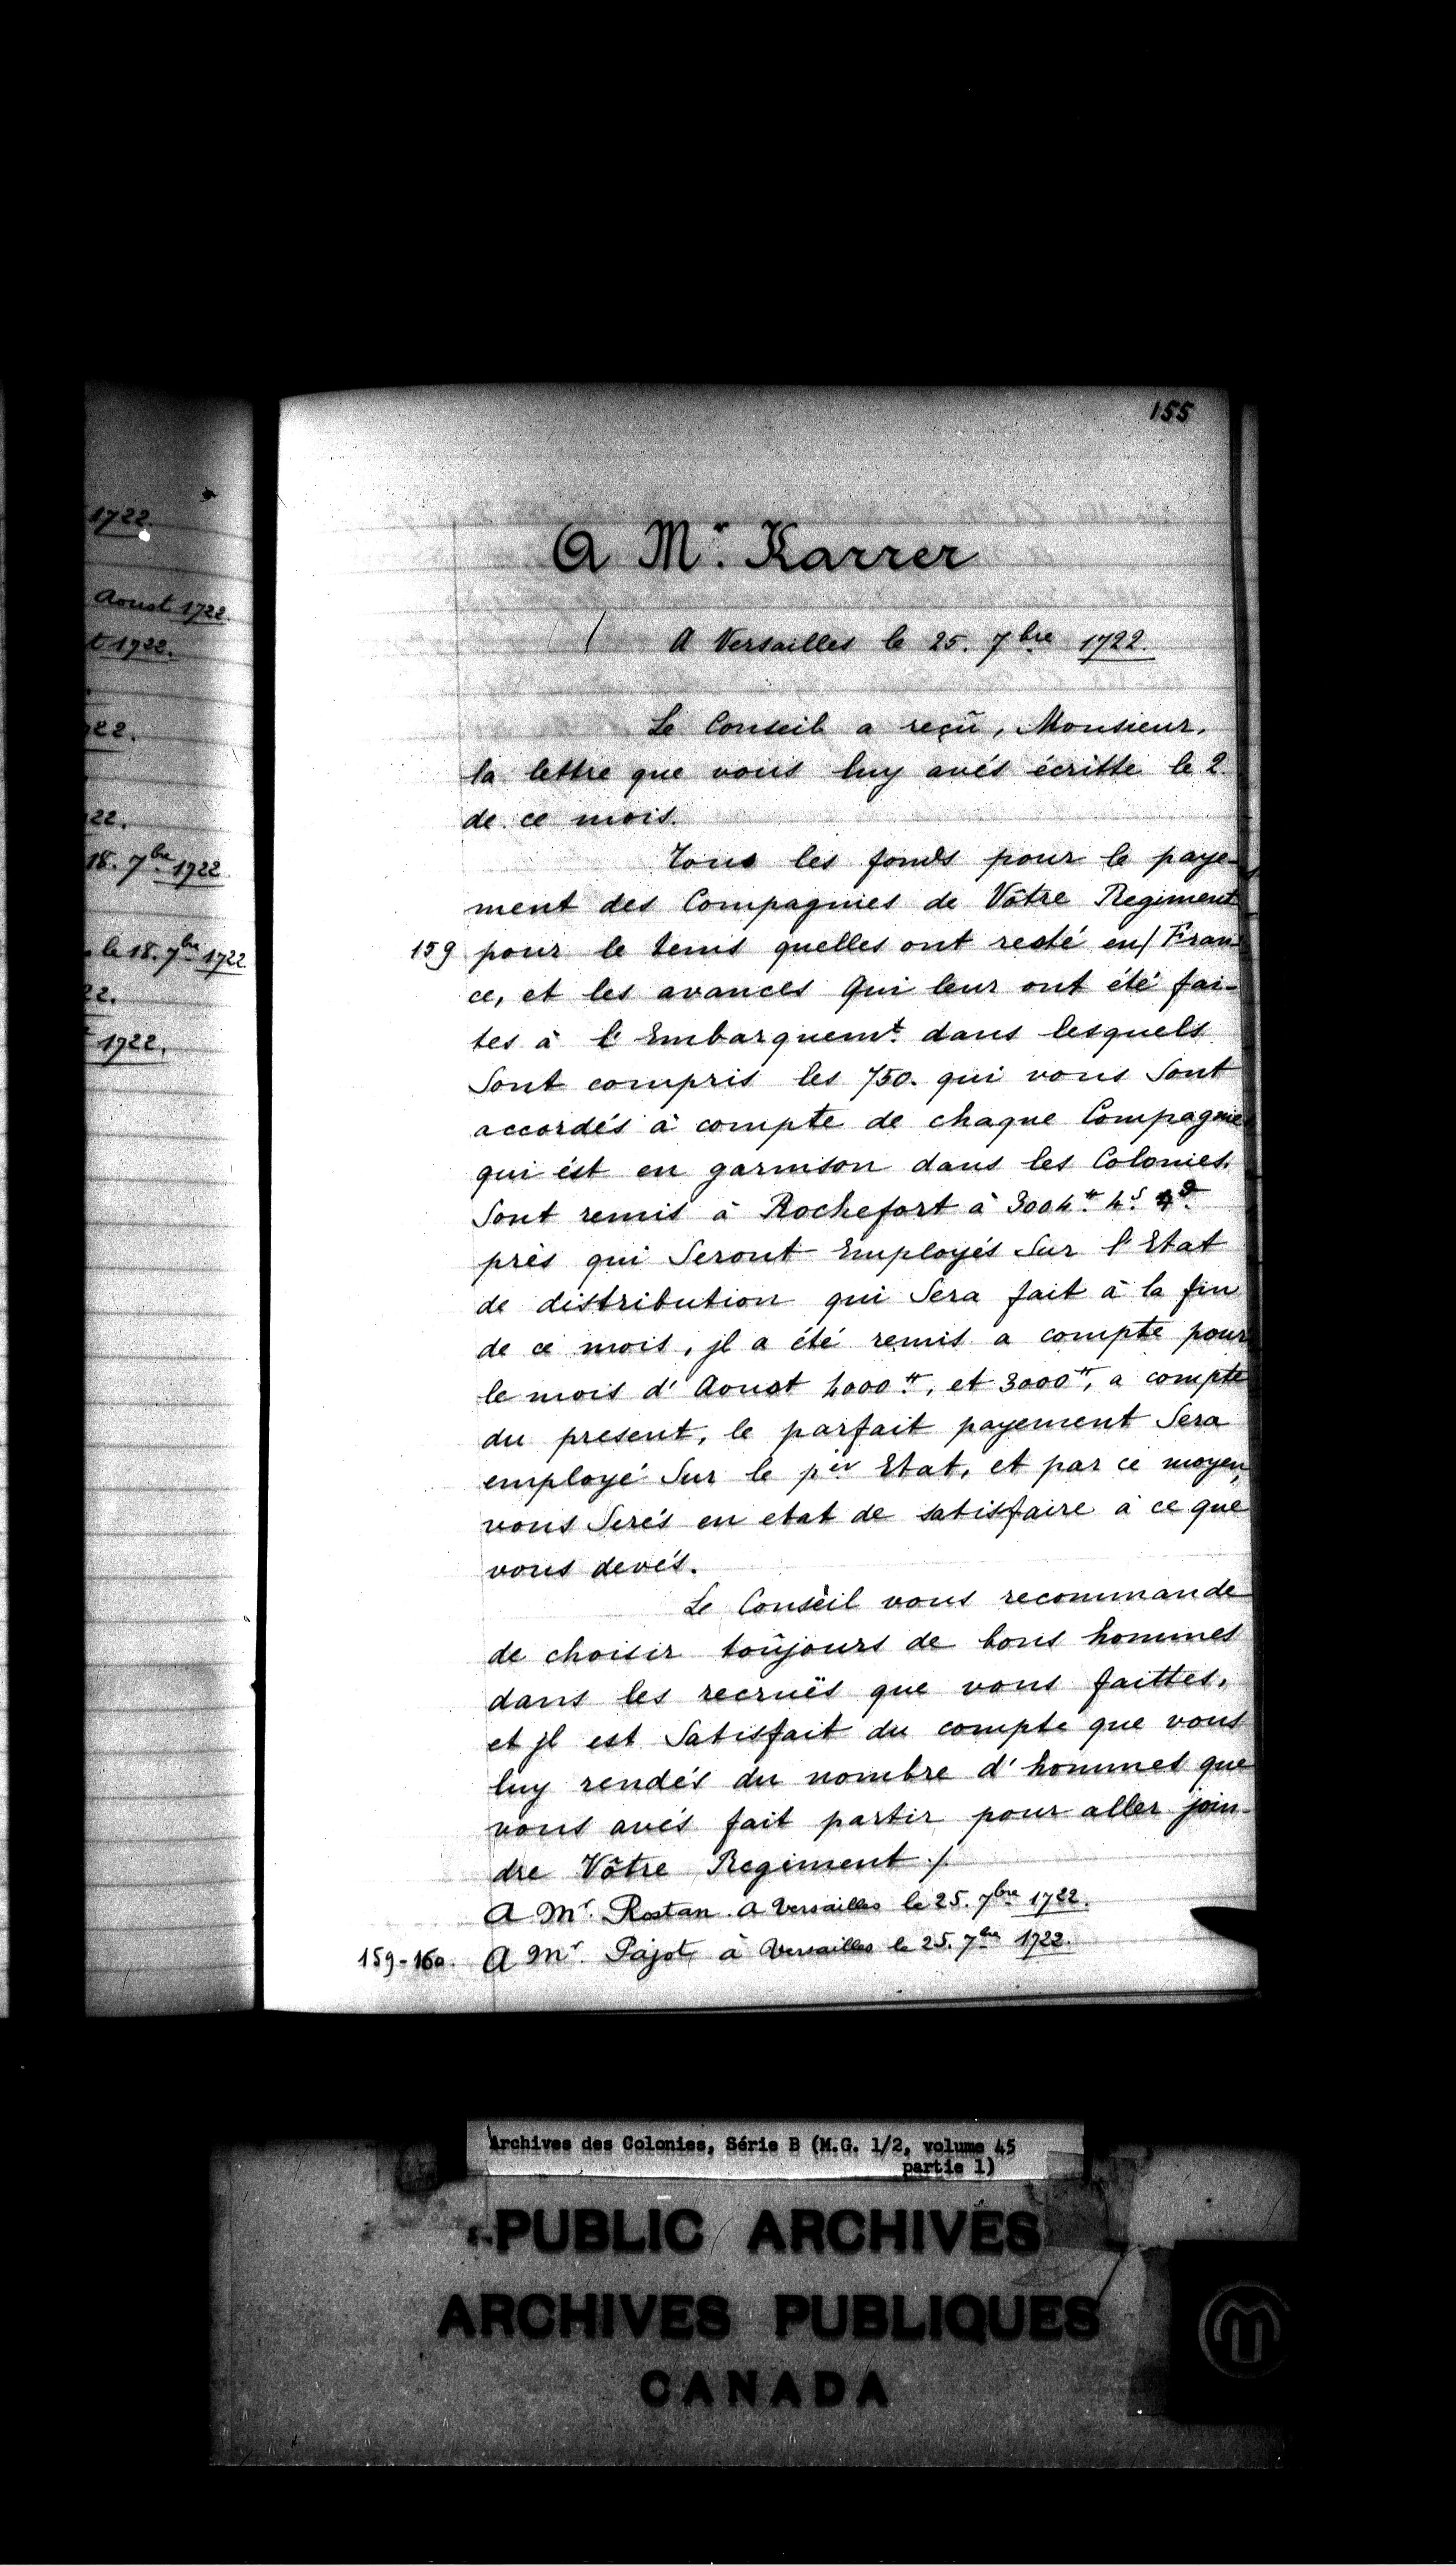 155
1722.
Aoust 1722.
t 1722.
22.
22.
18. 7bre 1722
le 18. 7bre 1722
22.
1722.
A Mr. Karrer
A Versailles le 25. 7bre 1722.
Le Conseil a reçû, Monsieur,
la lettre que vous luy avés écritte le 2.
de ce mois.
Tous les fonds pour le paye-
ment des Compagnies de Vôtre Regiment
159 pour le tems quelles ont resté en/ Fran-
ce, et les avances qui leur ont été fai-
tes à l'Embarquemt. dans lesquels
Sont compris les 750. qui vous Sont
accordés à compte de chaque Compagnie
qui ést en garnison dans les Colonies.
Sont remis à Rochefort à 3004tt. 4s.
près qui Seront Employés Sur l'Etat
de distribution qui Sera fait à la fin
de ce mois, jl a été remis a compte pour
le mois d'Aoust 4000tt, et 3000tt, a compte
du present, le parfait payement Sera
employé Sur le pier Etat, et par ce moyen,
vous Serés en etat de satisfaire à ce que
vous devés.
Le Conseil vous recommande
de choisir toûjours de bons hommes
dans les recruës que vous faittes,
et jl est Satisfait du compte que vous
luy rendés du nombre d'hommes que
vous avés fait partir pour aller join-
dre Vôtre Regiment /.
A Mr. Rostan. a Versailles le 25. 7bre 1722.
159-160. A Mr. Pajot, à Versailles le 25. 7bre 1722.
Archives des Colonies, Série B (M.G. 1/2, volume 45
partie 1)
PUBLIC ARCHIVES
ARCHIVES PUBLIQUES
CANADA